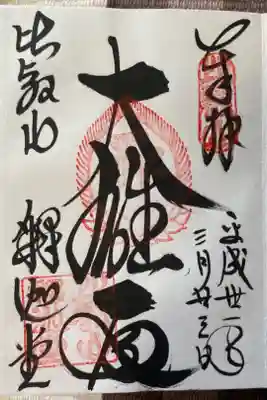 奉拝
平成丗一年
三月廿三日
大雄
比叡山
釋迦堂